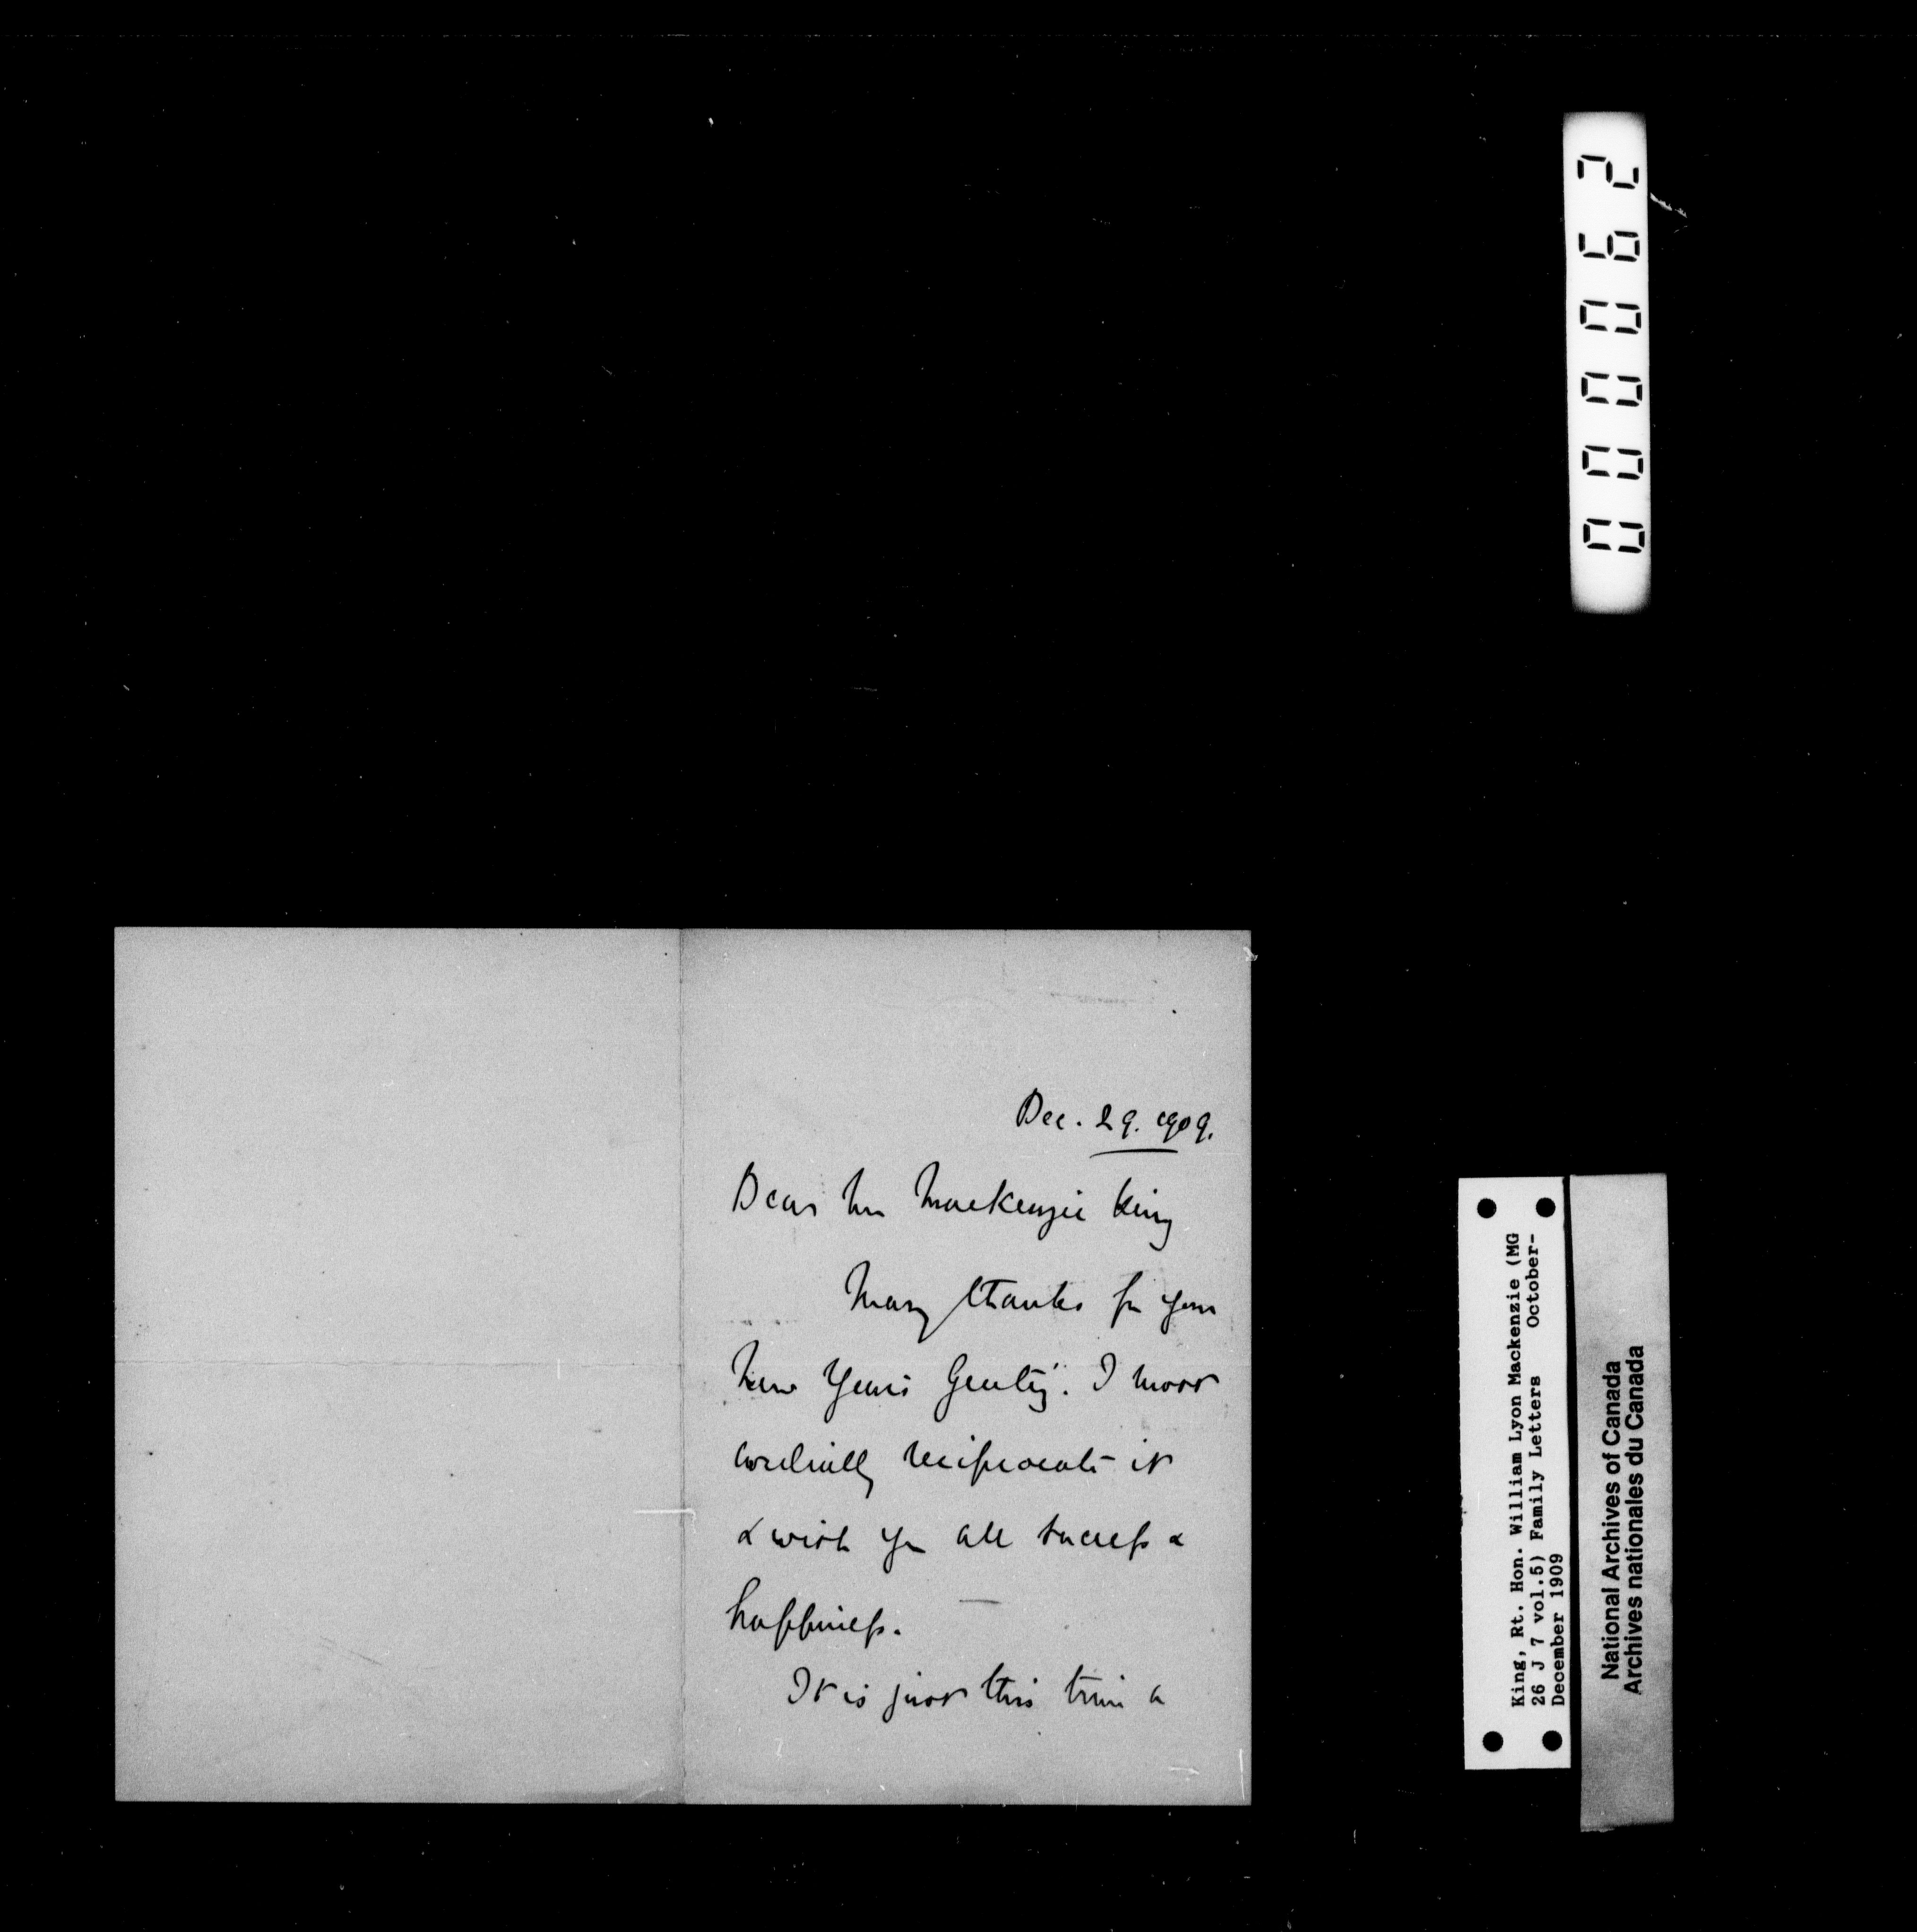 Dec. 29. 1909.
Dear Mr Mackenzie King
Many thanks for your
New Years Greeting. I most
cordially reciprocate it
& wish you all success &
happiness.
It is just this time a
000062
King, Rt. Hon. William Lyon Mackenzie (MG
26 J 7 vol.5) Family Letters October-
December 1909
National Archives of Canada
Archives nationales du Canada